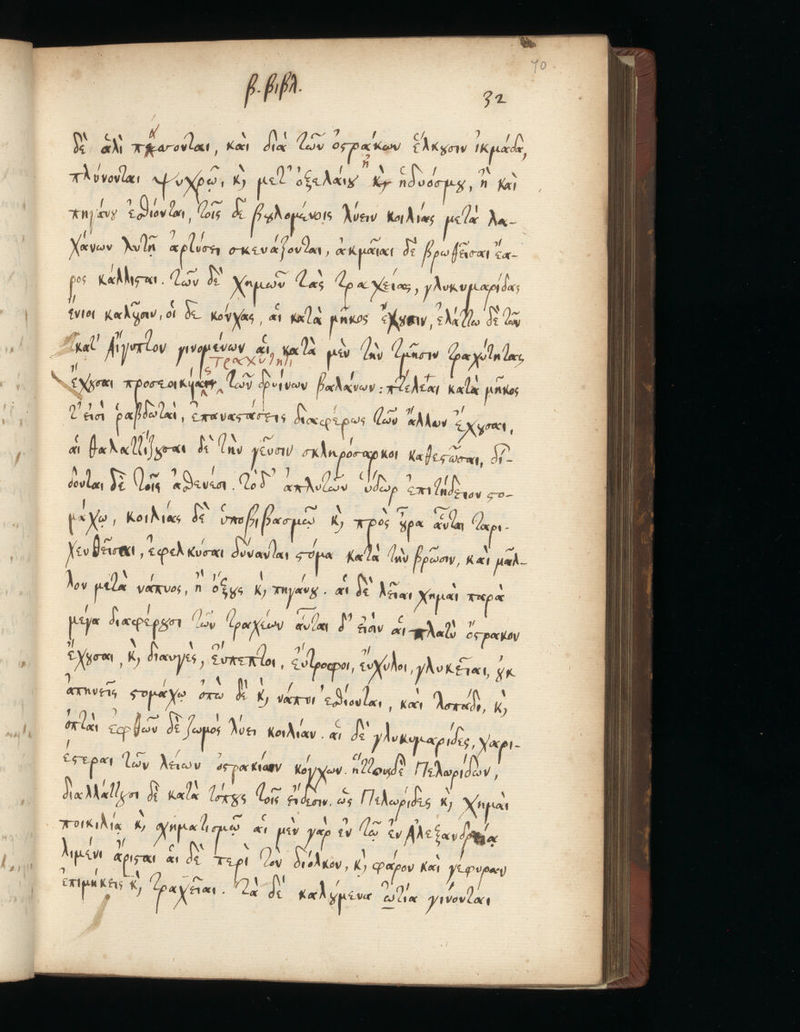 70
β. βιβλ.
32
δὲ ἁλὶ πάσονται, καὶ διὰ τῶν ὀστράκων ἕλκουσιν ἰκμάδα,
πλύνονται ψυχρῷ, καὶ μετ' ὀξελαίου ἢ καὶ ἡδυόσμου, ἢ καὶ
πηγάνου ἐσθίονται, τοῖς δὲ βουλομένοις λύειν κοιλίας μετὰ λα-
χάνων λυτῇ ἀρτύσει σκευάζονται, ἀκμαῖαι δὲ βρωθεῖσαι ἔα-
ρος κάλλισται. τῶν δὲ χημῶν τὰς τραχείας, γλυκυμαρίδας
ἔνιοι καλοῦσιν, οἱ δὲ κόγχας, αἳ κατὰ μῆκος ἔχουσιν, ἐλάττω δὲ τῶν
κατ' Αἴγυπτον γινομένων αἳ κατὰ μὲν τὴν τμῆσιν τραχύτητας
τραχύτητι
ἔχουσαι προσεοικυίας τῶν δρυΐνων βαλάνων: πτελέαι κατὰ μῆκος
τ' εἰσὶ ῥαβδωταὶ, ἐπαναστάσεις διαφέρως τῶν ἄλλων ἔχουσαι,
αἱ θαλαττίζουσαι δὲ τὴν γεῦσιν σκληρόσαρκοι καθεστῶσαι, δί-
δονται δὲ τοῖς ἀσθενέσι. τὸ δ' ἀπ' αὐτῶν ὕδωρ ἐπιτήδειον στο-
μάχῳ, κοιλίας δὲ ὑποβιβασμῷ καὶ πρὸς οὖρα αὗται ταρι-
χευθεῖσαι, ἐφελκύσαι δύνανται στόμα κατὰ τὴν βρῶσιν, καὶ μᾶλ-
λον μετὰ νάπυος, ἢ ὄξους καὶ πηγάνου. αἱ δὲ λεῖαι χημαὶ παρὰ
μέγα διαφέρουσι τῶν τραχέων αὗται δ' εἰσὶν αἱ πλατὺ ὄστρακον
ἔχουσαι, καὶ διαυγὲς, εὔπεπτοι, εὔτροφοι, εὔχυλοι, γλυκεῖαι, οὐκ
ἀπηνεῖς στομάχῳ ὀπῷ δὲ καὶ νάπυι ἐσθίονται, καὶ λοπάδι, καὶ
ὀπταὶ ἑφθῶν δὲ ζωμὸς λύει κοιλίαν. αἱ δὲ γλυκυμαρίδες, χαρι-
έστεραι τῶν λείων ὀστρακίων κόγχων. ἥττους δὲ Πελωρίδων,
διαλλάττουσι δὲ κατὰ τόπους τοῖς εἴδεσιν. ὡς Πελωρίδες καὶ χημαὶ
ποικιλίᾳ καὶ σχηματισμῷ αἱ μὲν γὰρ ἐν τῷ ἐν Ἀλεξανδρείᾳ
λιμένι ἄρισται αἱ δὲ περὶ τὸν δίολκον, καὶ φάρον καὶ γέφυραν
ἐπιμήκεις καὶ τραχεῖαι. τὰ δὲ καλούμενα ὠτία γίνονται